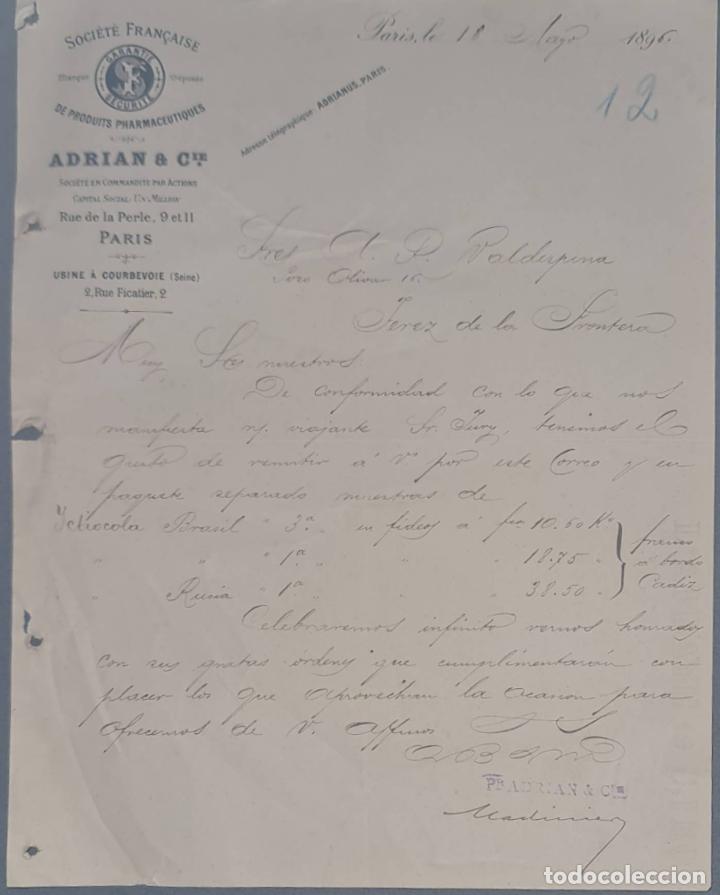 SOCIÉTÉ FRANÇAISE
GARANTIE
Marque Déposée
SÉCURITÉ
DE PRODUITS PHARMACEUTIQUES
ADRIAN & CIE
SOCIÉTÉ EN COMMANDITE PAR ACTIONS
CAPITAL SOCIAL: UN MILLION
Rue de la Perle, 9 et 11
PARIS
USINE À COURBEVOIE (Seine)
2, Rue Ficatier, 2
Paris, le 18 Mayo 1896.
12
Adresse télégraphique: ADRIANUS. PARIS.
Sres A. R. Valdespina
16
Jerez de la Frontera
Muy Sres nuestros
De conformidad con lo que nos
manifiesta n/. viajante Sr. Jury, tenemos el
gusto de remitir á Vs por este Correo y en
paquete separado muestras de
Ictiocola Brasil " 3ª " en fideos á frs 10.50 Ko
" " " 1ª " " " 18.75 "
" Rusia " 1ª " " " 38.50 "
franco
á bordo
Cadiz
Celebraremos infinito vernos honrados
con sus gratas órdenes que cumplimentarán con
placer los que aprovechan la ocasion para
ofrecernos de V. Affmos S S
Q B S M
PR ADRIAN & CIE
todocoleccion.net